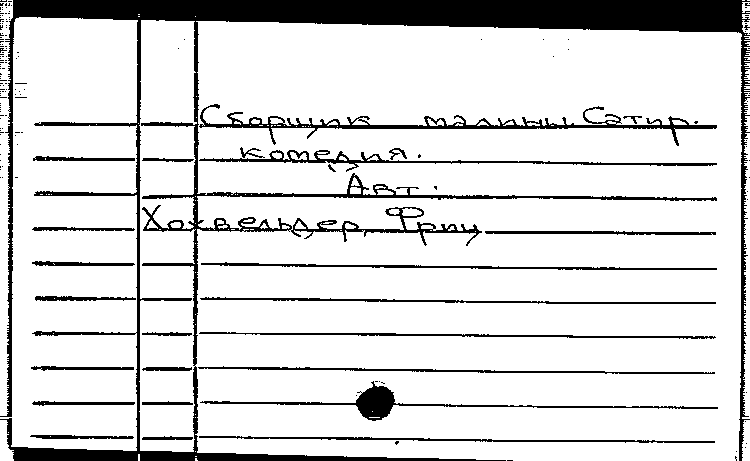 Сборщик малины. Сатир.
комедия.
Авт.
Хохвельдер, Фриц